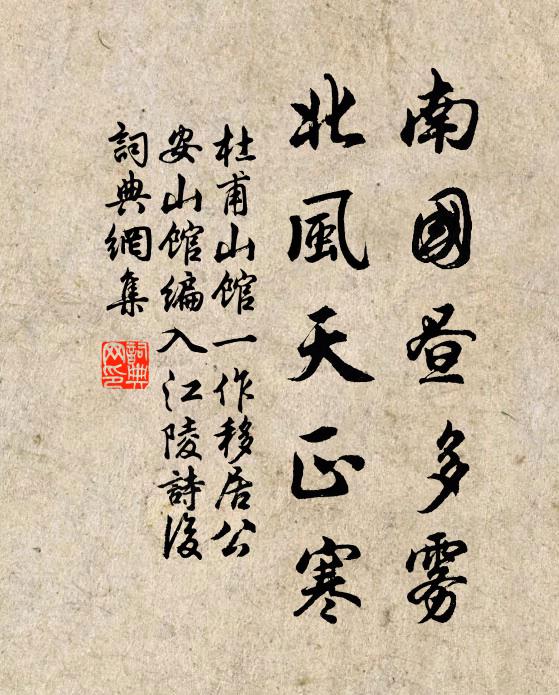 南國昼多雾
北風天正寒
杜甫山館一作移居公
安山館编入江陵詩後
詞典網集
詞典
网印